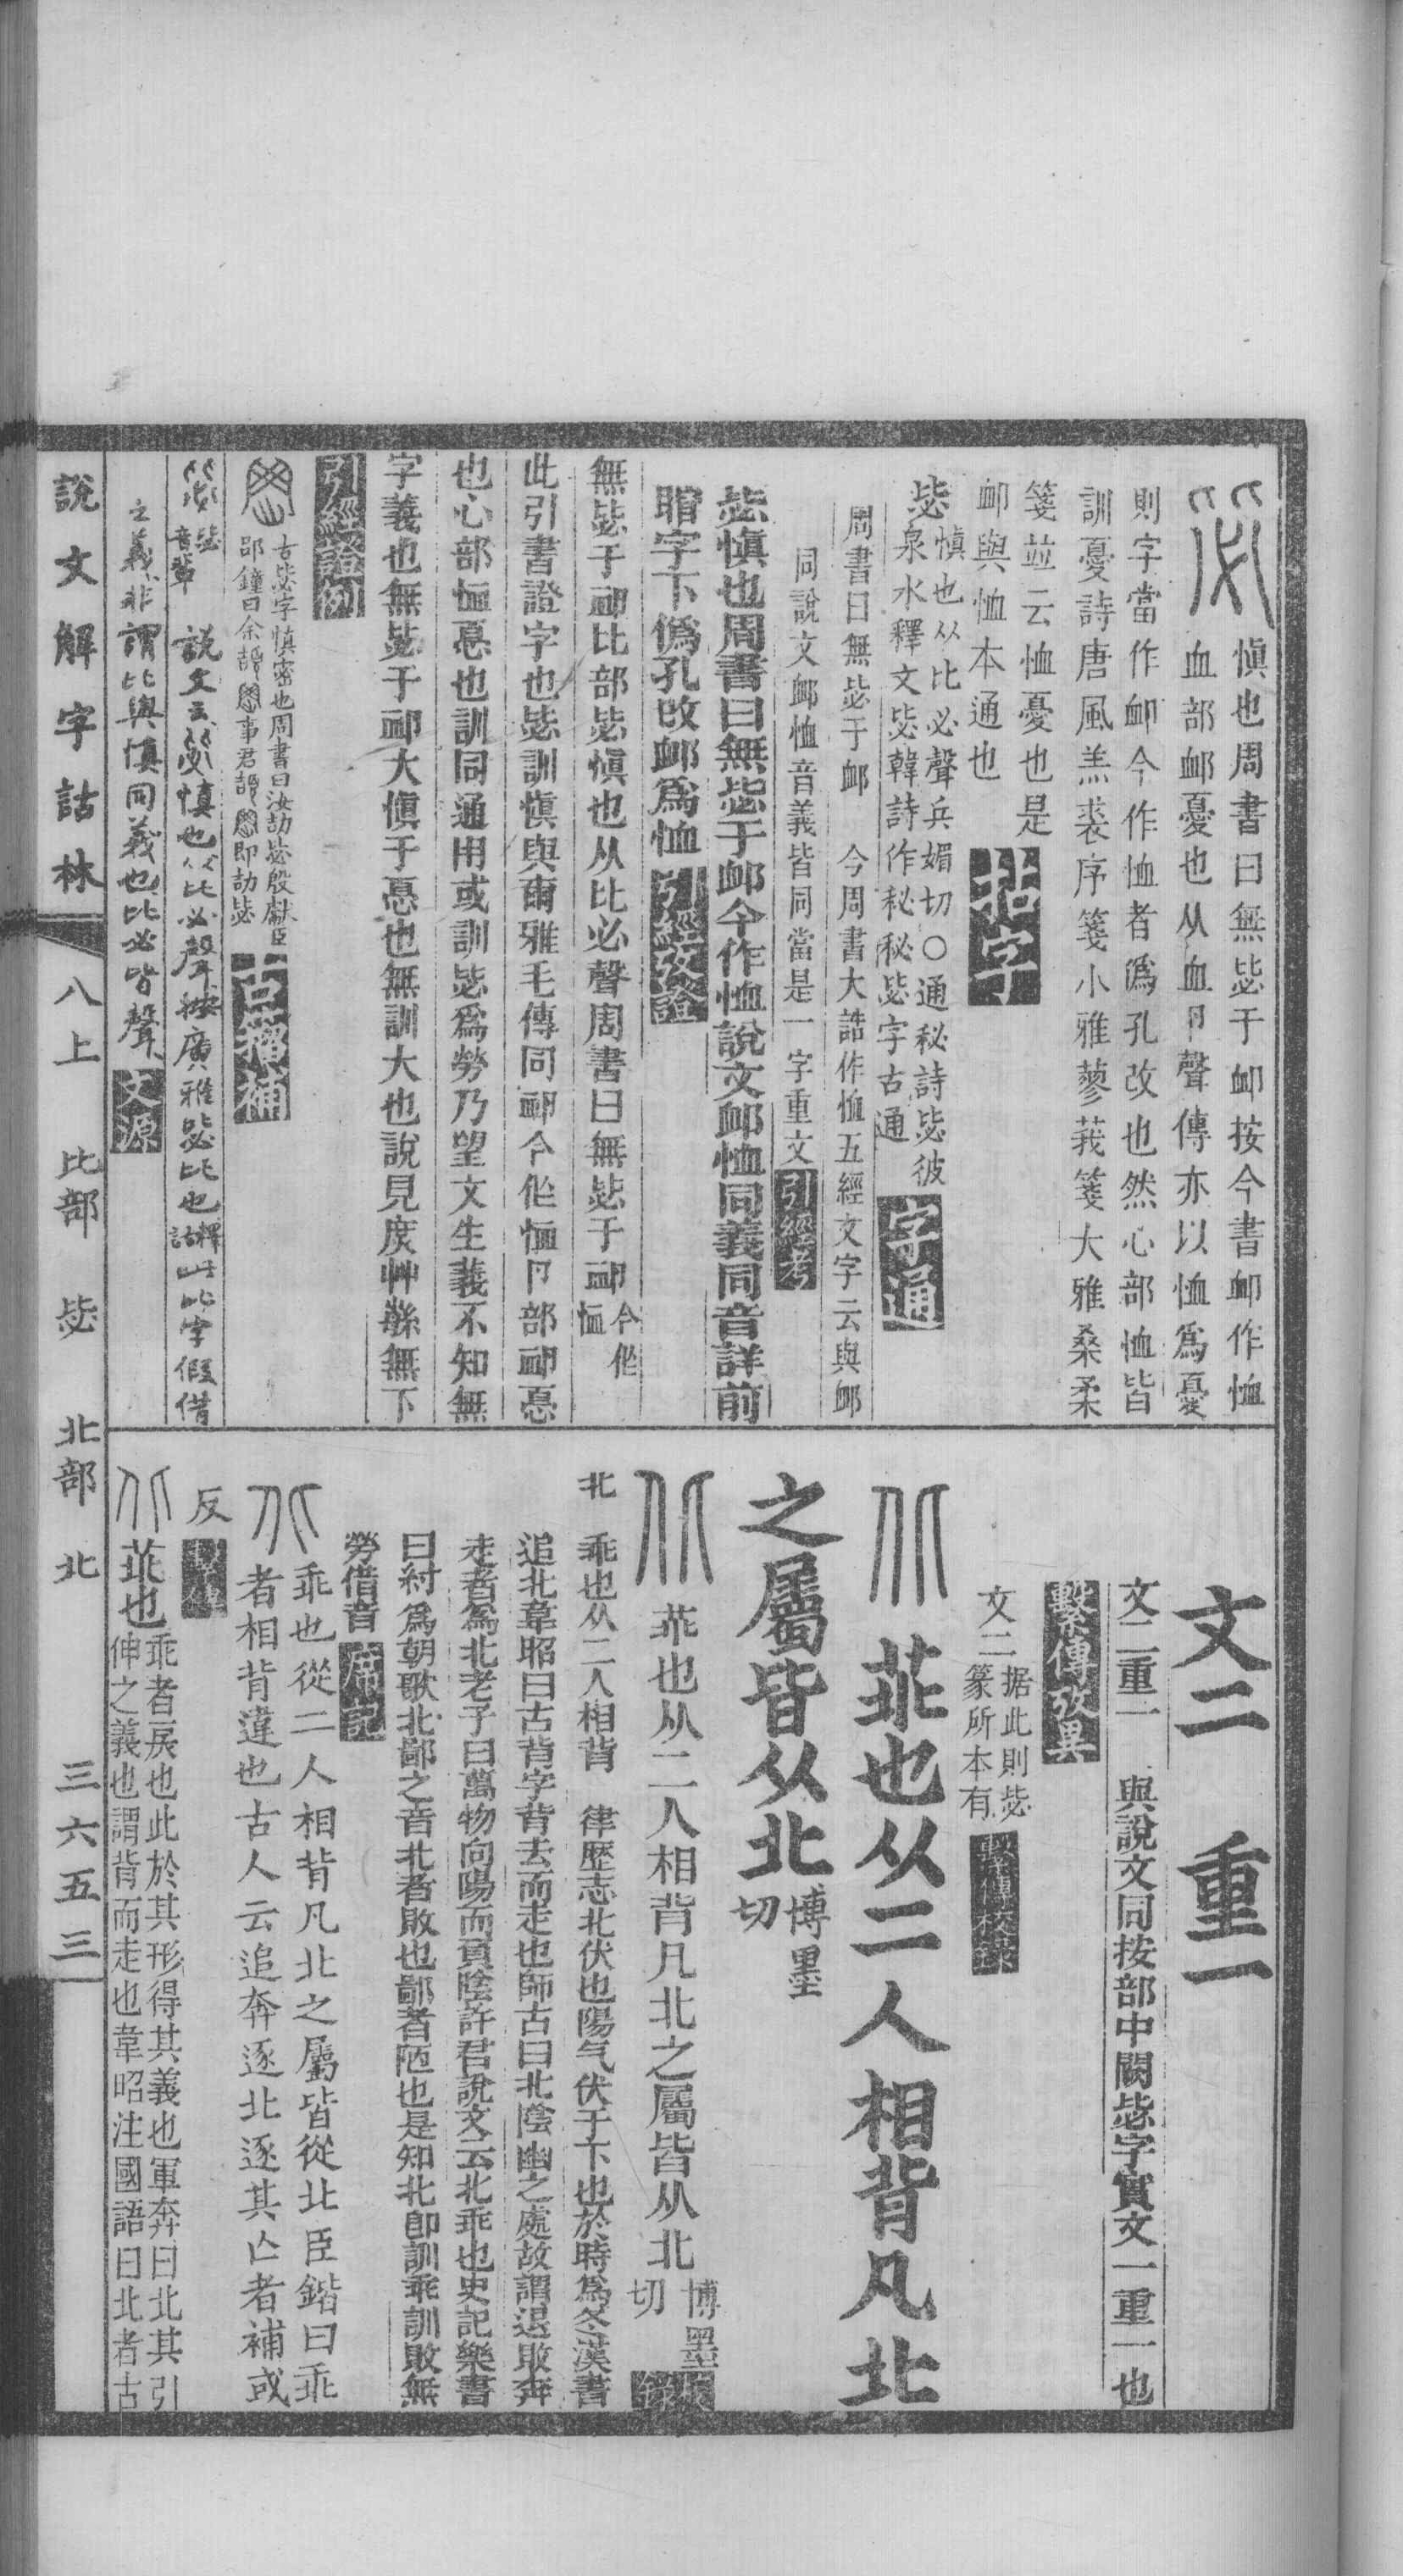 愼也周書曰無毖于卹按今書卹作恤
血部卹憂也从血卪聲傳亦以恤爲憂
則字當作卹今作恤者僞孔改也然心部恤皆
訓憂詩唐風羔裘序箋小雅蓼莪箋大雅桑柔
箋並云恤憂也是
卹與恤本通也 拈字
毖 愼也从比必聲兵媚切○通秘詩毖彼
泉水釋文毖韓詩作秘秘毖字古通 字通
周書曰無毖于卹 今周書大誥作恤五經文字云與卹
同說文卹恤音義皆同當是一字重文 引經考
毖愼也周書曰無毖于卹今作恤說文卹恤同義同音詳前
䁂字下僞孔改卹爲恤 引經攷證
無毖于卹比部毖愼也从比必聲周書曰無毖于卹今作恤
此引書證字也毖訓愼與爾雅毛傳同卹今作恤卪部卹惪
也心部恤惪也訓同通用或訓毖爲勞乃望文生義不知無
字義也無毖于卹大愼于惪也無訓大也說見庶艸緐無下
引經證例
古毖字愼密也周書曰汝劼毖殷獻臣
郘鐘曰余 事君 卽劼毖 古籀補
毖音轡 說文云 愼也从比必聲按廣雅毖比也釋詁此比字假借
之義非謂比與愼同義也比必皆聲 文源
說文解字詁林 八上 比部 毖 北部 北 三六五三
文二 重一
文二重一 與說文同按部中闕毖字實文一重一也
繫傳攷異
文二 据此則毖篆所本有 繫傳校錄
菲也从二人相背凡北
之屬皆从北 博墨切
菲也从二人相背凡北之屬皆从北 博墨切
北 乖也从二人相背 律歷志北伏也陽气伏于下也於時爲冬漢書
追北韋昭曰古背字背去而走也師古曰北陰幽之處故謂退敗奔
走者爲北老子曰萬物向陽而負陰許君說文云北乖也史記樂書
曰紂爲朝歌北鄙之音北者敗也鄙者陋也是知北卽訓乖訓敗無
勞借音 席記
乖也從二人相背凡北之屬皆從北臣鍇曰乖
者相背違也古人云追奔逐北逐其亡者補或
反 繫傳
菲也 乖者戾也此於其形得其義也軍奔曰北其引
伸之義也謂背而走也韋昭注國語曰北者古